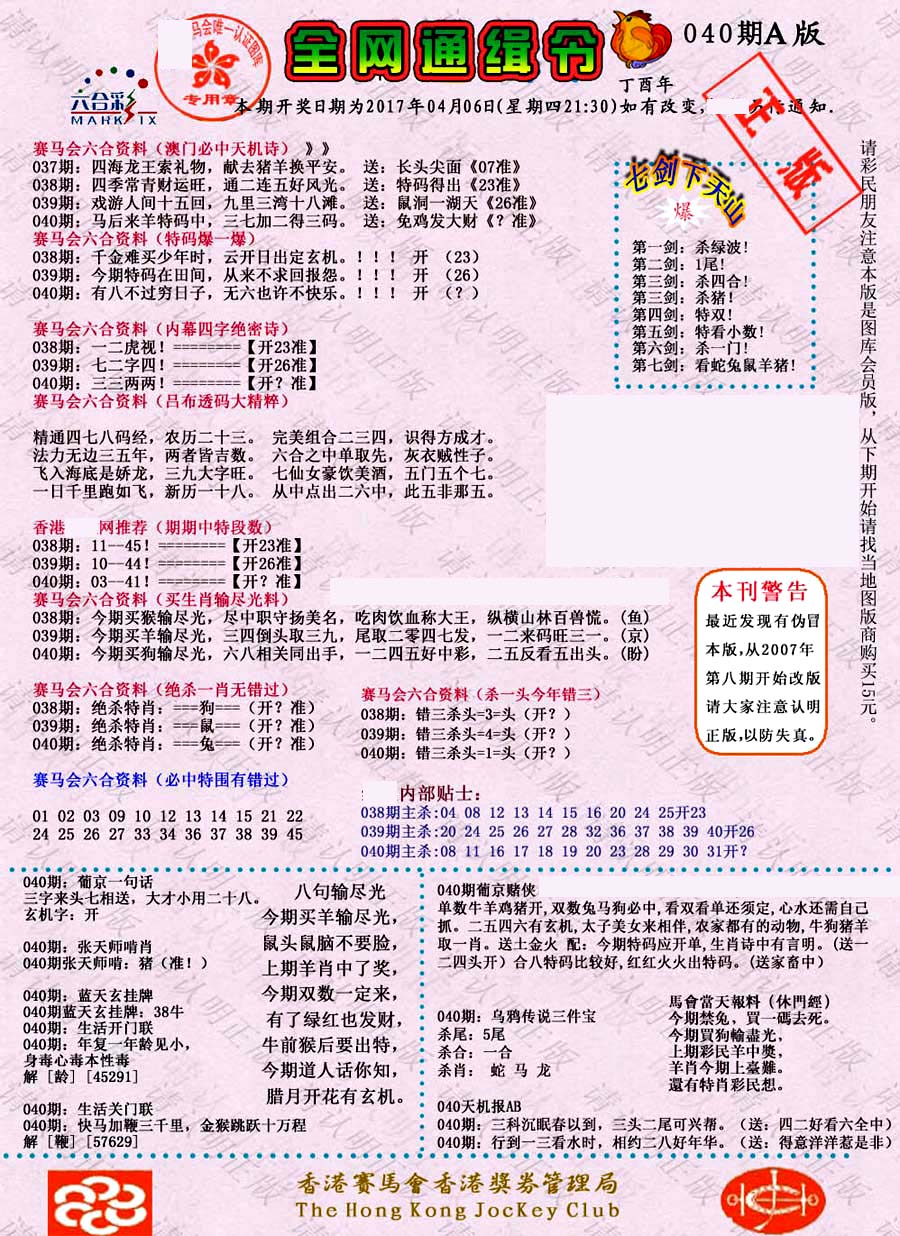 马会唯一认证图库
专用章
全网通缉令
040期A版
丁酉年
六合彩
MARK SIX
本期开奖日期为2017年04月06日(星期四21:30)如有改变,
通知.
正版
赛马会六合资料（澳门必中天机诗）》》
037期: 四海龙王索礼物, 献去猪羊换平安。 送: 长头尖面《07准》
038期: 四季常青财运旺, 通二连五好风光。 送: 特码得出《23准》
039期: 戏游人间十五回, 九里三湾十八滩。 送: 鼠洞一湖天《26准》
040期: 马后来羊特码中, 三七加二得三码。 送: 免鸡发大财《？准》
赛马会六合资料（特码爆一爆）
038期: 千金难买少年时, 云开日出定玄机。！！！ 开 （23）
039期: 今期特码在田间, 从来不求回报怨。！！！ 开 （26）
040期: 有八不过穷日子, 无六也许不快乐。！！！ 开 （？）
赛马会六合资料（内幕四字绝密诗）
038期: 一二虎视! ========【开23准】
039期: 七二字四! ========【开26准】
040期: 三三两两! ========【开？准】
赛马会六合资料（吕布透码大精粹）
精通四七八码经, 农历二十三。 完美组合二三四, 识得方成才。
法力无边三五年, 两者皆吉数。 六合之中单取先, 灰衣贼性子。
飞入海底是娇龙, 三九大字旺。 七仙女豪饮美酒, 五门五个七。
一日千里跑如飞, 新历一十八。 从中点出二六中, 此五非那五。
香港 网推荐（期期中特段数）
038期: 11--45! ========【开23准】
039期: 10--44! ========【开26准】
040期: 03--41! ========【开？准】
赛马会六合资料（买生肖输尽光料）
038期: 今期买猴输尽光, 尽中职守扬美名, 吃肉饮血称大王, 纵横山林百兽慌。(鱼)
039期: 今期买羊输尽光, 三四倒头取三九, 尾取二零四七发, 一二来码旺三一。(京)
040期: 今期买狗输尽光, 六八相关同出手, 一二四五好中彩, 二五反看五出头。(盼)
赛马会六合资料（绝杀一肖无错过）
038期: 绝杀特肖: ===狗===（开？准）
039期: 绝杀特肖: ===鼠===（开？准）
040期: 绝杀特肖: ===兔===（开？准）
赛马会六合资料（杀一头今年错三）
038期: 错三杀头=3=头（开？）
039期: 错三杀头=4=头（开？）
040期: 错三杀头=1=头（开？）
赛马会六合资料（必中特围有错过）
01 02 03 09 10 12 13 14 15 21 22
24 25 26 27 33 34 36 37 38 39 45
内部贴士:
038期主杀:04 08 12 13 14 15 16 20 24 25开23
039期主杀:20 24 25 26 27 28 32 36 37 38 39 40开26
040期主杀:08 11 16 17 18 19 20 23 28 29 30 31开?
七剑下天山
爆
第一剑: 杀绿波!
第二剑: 1尾!
第三剑: 杀四合!
第三剑: 杀猪!
第四剑: 特双!
第五剑: 特看小数!
第六剑: 杀一门!
第七剑: 看蛇兔鼠羊猪!
请彩民朋友注意本版是图库会员版, 从下期开始请找当地图版商购买15元。
本刊警告
最近发现有伪冒
本版,从2007年
第八期开始改版
请大家注意认明
正版,以防失真。
040期: 葡京一句话
三字来头七相送, 大才小用二十八。
玄机字: 开
040期: 张天师啃肖
040期张天师啃: 猪（准!）
040期: 蓝天玄挂牌
040期蓝天玄挂牌: 38牛
040期: 生活开门联
040期: 年复一年龄见小,
身毒心毒本性毒
解 [龄] [45291]
040期: 生活关门联
040期: 快马加鞭三千里, 金猴跳跃十万程
解 [鞭] [57629]
八句输尽光
今期买羊输尽光,
鼠头鼠脑不要脸,
上期羊肖中了奖,
今期双数一定来,
有了绿红也发财,
牛前猴后要出特,
今期道人话你知,
腊月开花有玄机。
040期葡京赌侠
单数牛羊鸡猪开, 双数兔马狗必中, 看双看单还须定, 心水还需自己
抓。二五四六有玄机, 太子美女来相伴, 农家都有的动物, 牛狗猪羊
取一肖。送土金火 配: 今期特码应开单, 生肖诗中有言明。(送一
二四头开）合八特码比较好, 红红火火出特码。(送家畜中)
040期: 乌鸦传说三件宝
杀尾: 5尾
杀合: 一合
杀肖: 蛇 马 龙
馬會當天報料（休門經）
今期禁兔、買一碼去死。
今期買狗輸盡光,
上期彩民羊中獎,
羊肖今期上臺難。
還有特肖彩民想。
040天机报AB
040期: 三科沉眠春以到, 三头二尾可兴帮。（送: 四二好看六全中）
040期: 行到一三看水时, 相约二八好年华。（送: 得意洋洋惹是非）
香港賽馬會香港獎券管理局
The Hong Kong JocKey Club